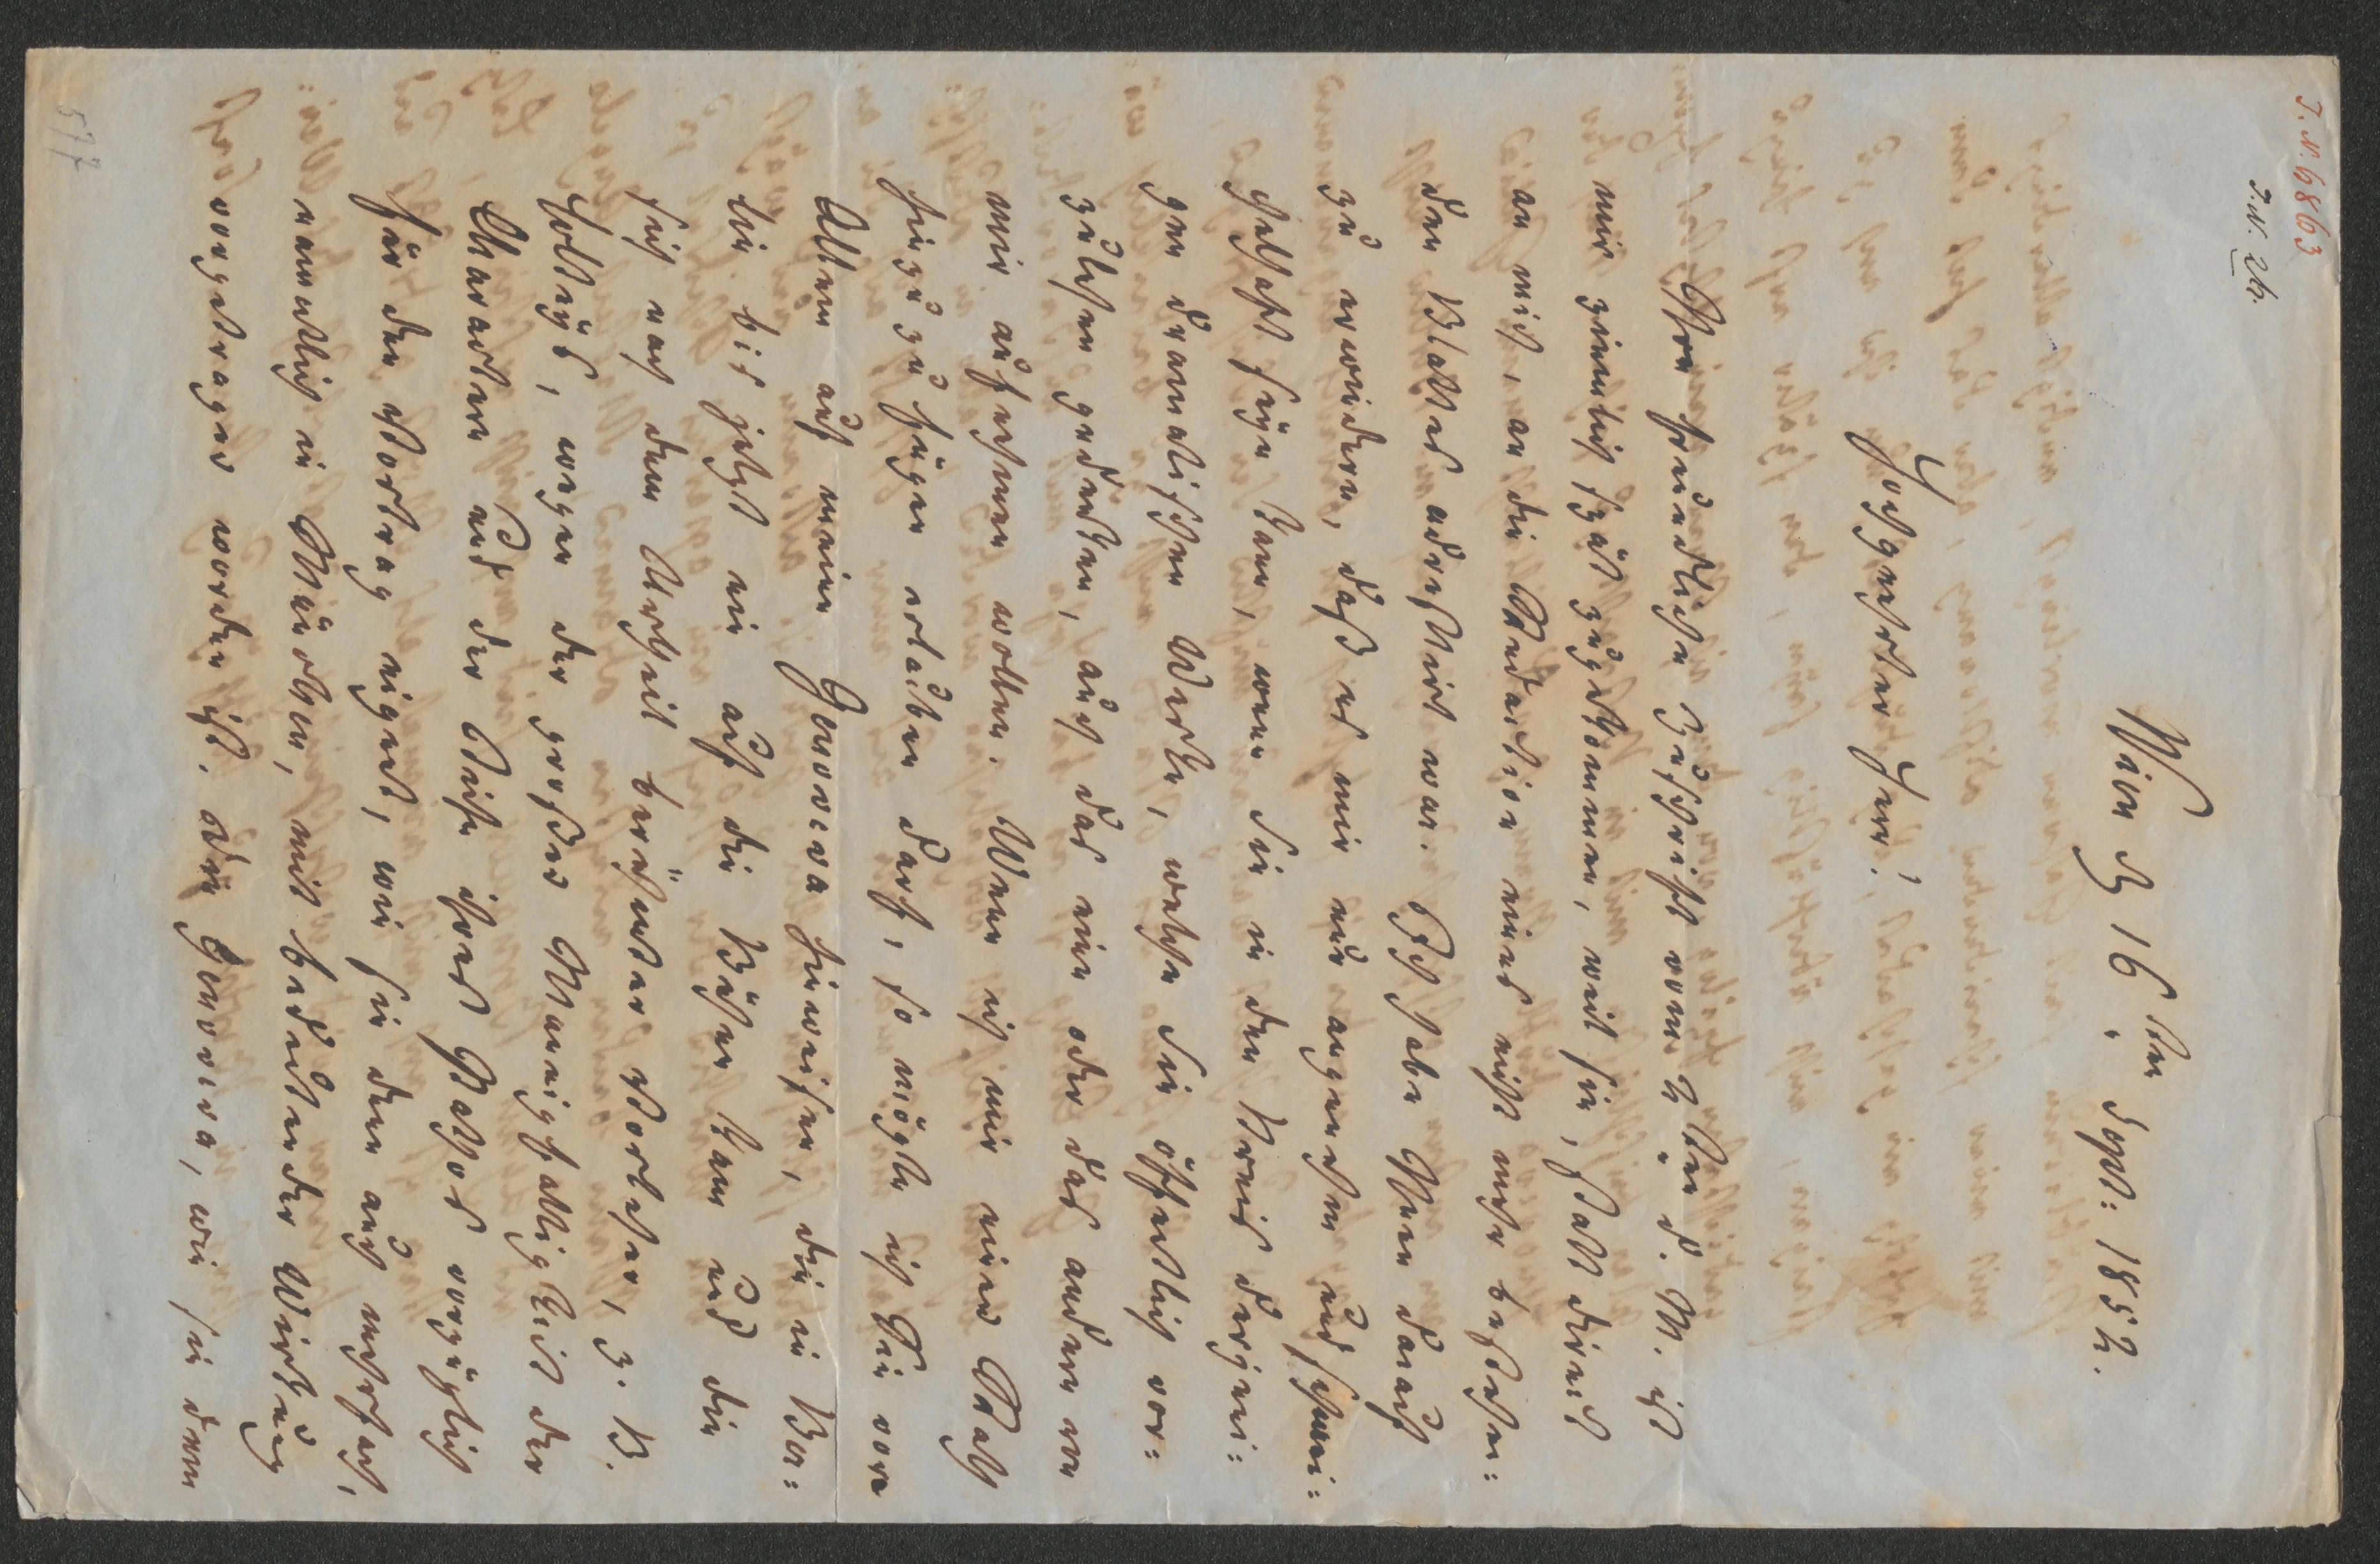 I. N. 68663
I. N. 26.
Wien d 16ten Sept: 1852.
Hochgeehrter Herr!
Ihre freundliche Zuschrift vom 2ten d. M. ist
mir ziemlich spät zugekommen, weil sie, statt direct
an mich, an die Redaction eines nicht mehr bestehen=
den Blattes adressirt war. Ich habe Ihnen darauf
zu erwiedern, daß es mir nur angenehm und schmei=
chelhaft seyn kann, wenn Sie in den Kreis derjeni=
gen dramatischen Werke, welche Sie öffentlich vor=
zulesen gedenken, auch das eine oder das andere von
mir aufnehmen wollen. Wenn ich mir einen Rath
hinzu zu fügen erlauben darf, so mögte ich Sie vor
Allem auf meine Genoveva hinweisen, die in Ber=
lin bis jetzt nie auf die Bühne kam und die
sich nach dem Urtheil berühmter Vorleser, z. B.
Holteys, wegen der großen Mannigfaltigkeit der
Charactere und der ihres Pathos vorzüglich
für den Vortrag eignet, wie sie denn auch mehrfach,
namentlich in München, mit bedeutender Wirkung
vorgetragen worden ist. Die Genoveva, wie sie dem
577